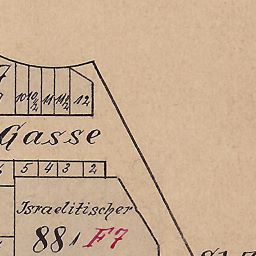 7
10 10/2 11 11/2 12
Gasse
5 4 3 2
Israelitischer
88/1 F7